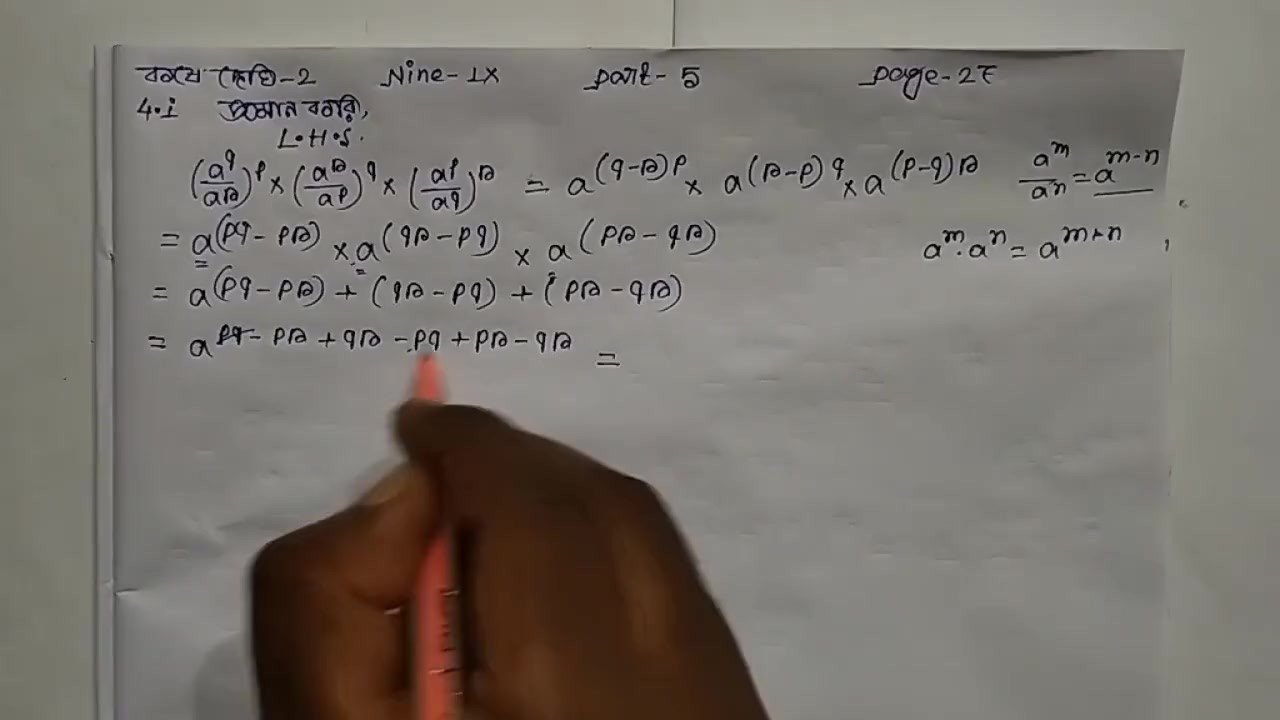 কষে দেখি-2 Nine-IX Part-5 Page-27
4.i প্রমাণ করি,
L.H.S.
(a^q/a^r)^p × (a^r/a^p)^q × (a^p/a^q)^r = a^(q-r)p × a^(r-p)q × a^(p-q)r a^m/a^n = a^m-n
= a^(pq-pr) × a^(qr-pq) × a^(pr-qr) a^m.a^n = a^m+n
= a^(pq-pr)+(qr-pq)+(pr-qr)
= a^pq-pr+qr-pq+pr-qr =